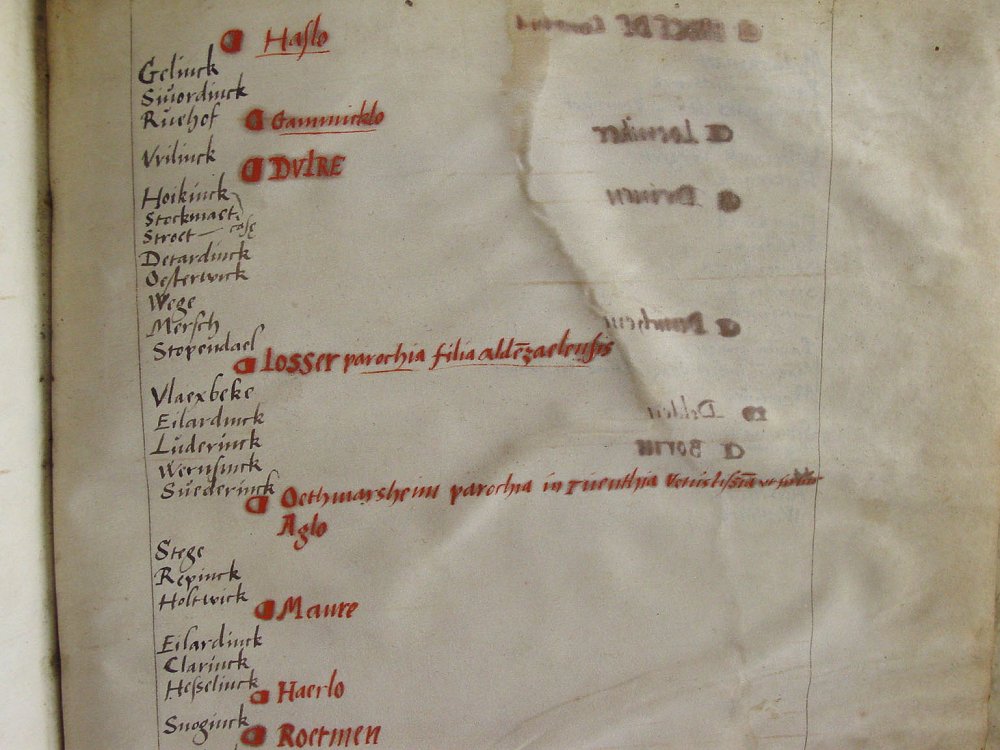 Haslo
Gelinck
Suuordinck
Ruehof
Gammincklo
Vrilinck
DVLRE
Hoikinck
Stockmaet
Stroet — case
Detardinck
Oesterwick
Wege
Mersch
Stopendael
Losser parochia filia aldēzaelensis
Vlaexbeke
Eilardinck
Luderinck
Wernsinck
Suederinck
Oethmarshem parochia in Tuenthia
Aglo
Stege
Repinck
Holtwick
Maure
Eilardinck
Clarinck
Hesselinck
Haerlo
Snoginck
Roetmen